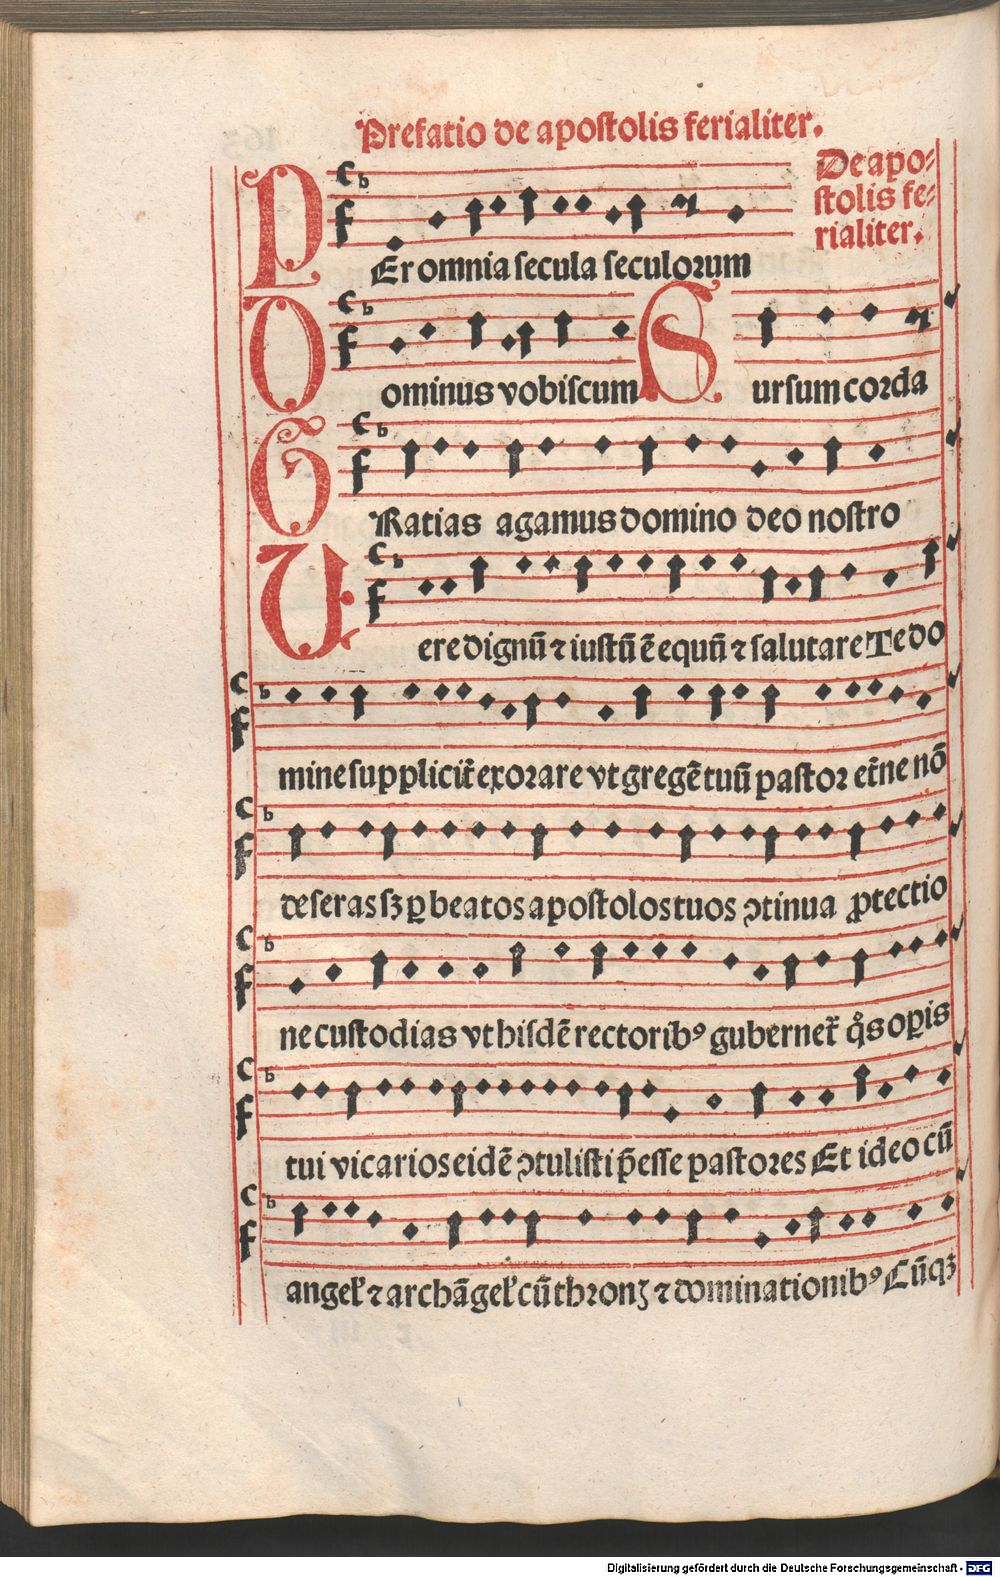 Prefatio de apostolis ferialiter.
De apo⸗
stolis fe⸗
rialiter.
PEr omnia secula seculorum
Dominus vobiscum Sursum corda
GRatias agamus domino deo nostro
Vere dignū ⁊ iustū ē equū ⁊ salutare Te do
mine suppliciť exorare vt gregē tuū pastor eťne nō
deseras sꝫ ꝑ beatos apostolos tuos ↄtinua ꝓtectio
ne custodias vt hisdē rectoribꝰ guberneť q̊s oꝑis
tui vicarios eidē ↄtulisti p̄esse pastores Et ideo cū
angeľ ⁊ archāgeľ cū thronꝫ ⁊ dominationibꝰ Cūqꝫ
Digitalisierung gefördert durch die Deutsche Forschungsgemeinschaft - DFG